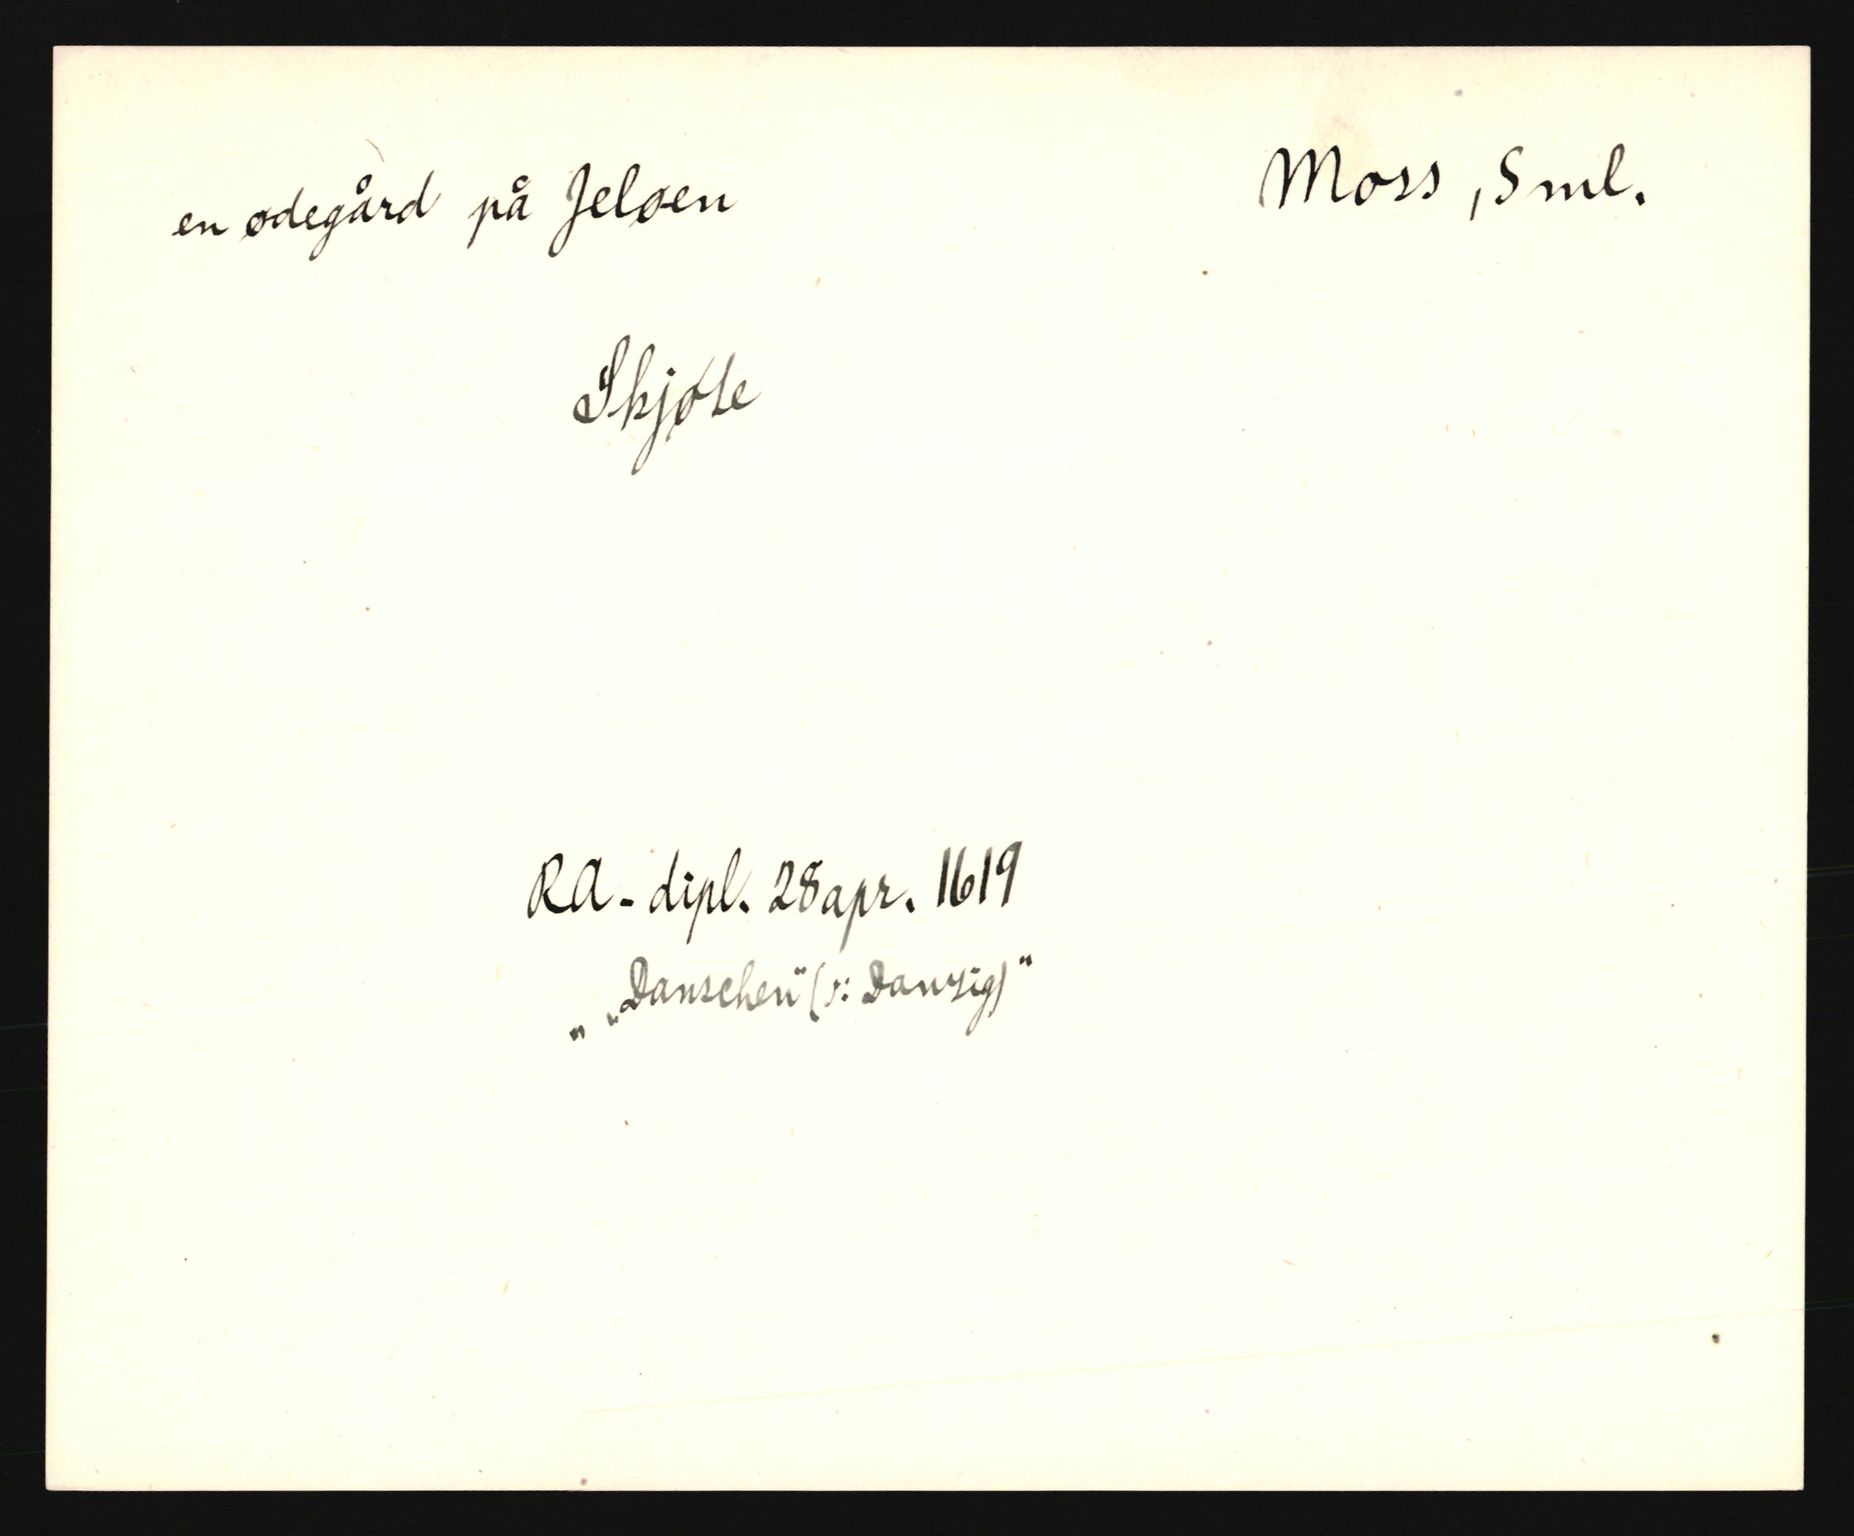 en ødegård på Jeløen
Moss, Sml.
Skjøte
RA-dipl. 28 apr. 1619
„ „Danschen" (ɔ: Danzig) "